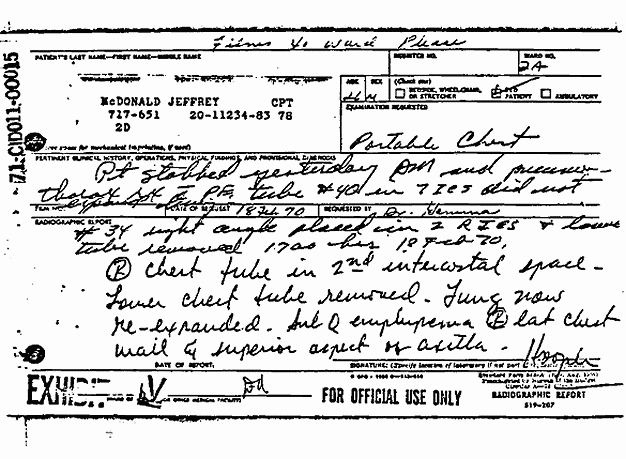 Films to ward Please
PATIENT'S LAST NAME—FIRST NAME—MIDDLE NAME
REGISTER NO.
WARD NO.
2A
AGE
SEX
(Check one)
M
BEDSIDE, WHEELCHAIR, OR STRETCHER
BED PATIENT
AMBULATORY
McDONALD JEFFREY CPT
717-651 20-11234-83 78
2D
EXAMINATION REQUESTED
Portable Chest
space for mechanical imprinting, if used)
PERTINENT CLINICAL HISTORY, OPERATIONS, PHYSICAL FINDINGS, AND PROVISIONAL DIAGNOSIS
Pt stabbed yesterday AM and pneumo-
thorax tube #40 in 7 ICS did not
FILM NO.
DATE OF REQUEST
18 Feb 70
REQUESTED BY
Dr.
RADIOGRAPHIC REPORT
#34 right angle placed in 2 R ICS & lower
tube removed 1700 hrs 18 Feb 70.
Ⓡ chest tube in 2nd intercostal space-
Lower chest tube removed. Lung now
re-expanded. Sub Q emphysema Ⓡ lat chest
wall & superior aspect of axilla.
DATE OF REPORT
SIGNATURE: (Specify location of laboratory if not part
EXHIBIT
FOR OFFICIAL USE ONLY
RADIOGRAPHIC REPORT
519-207
71-CID011-00015